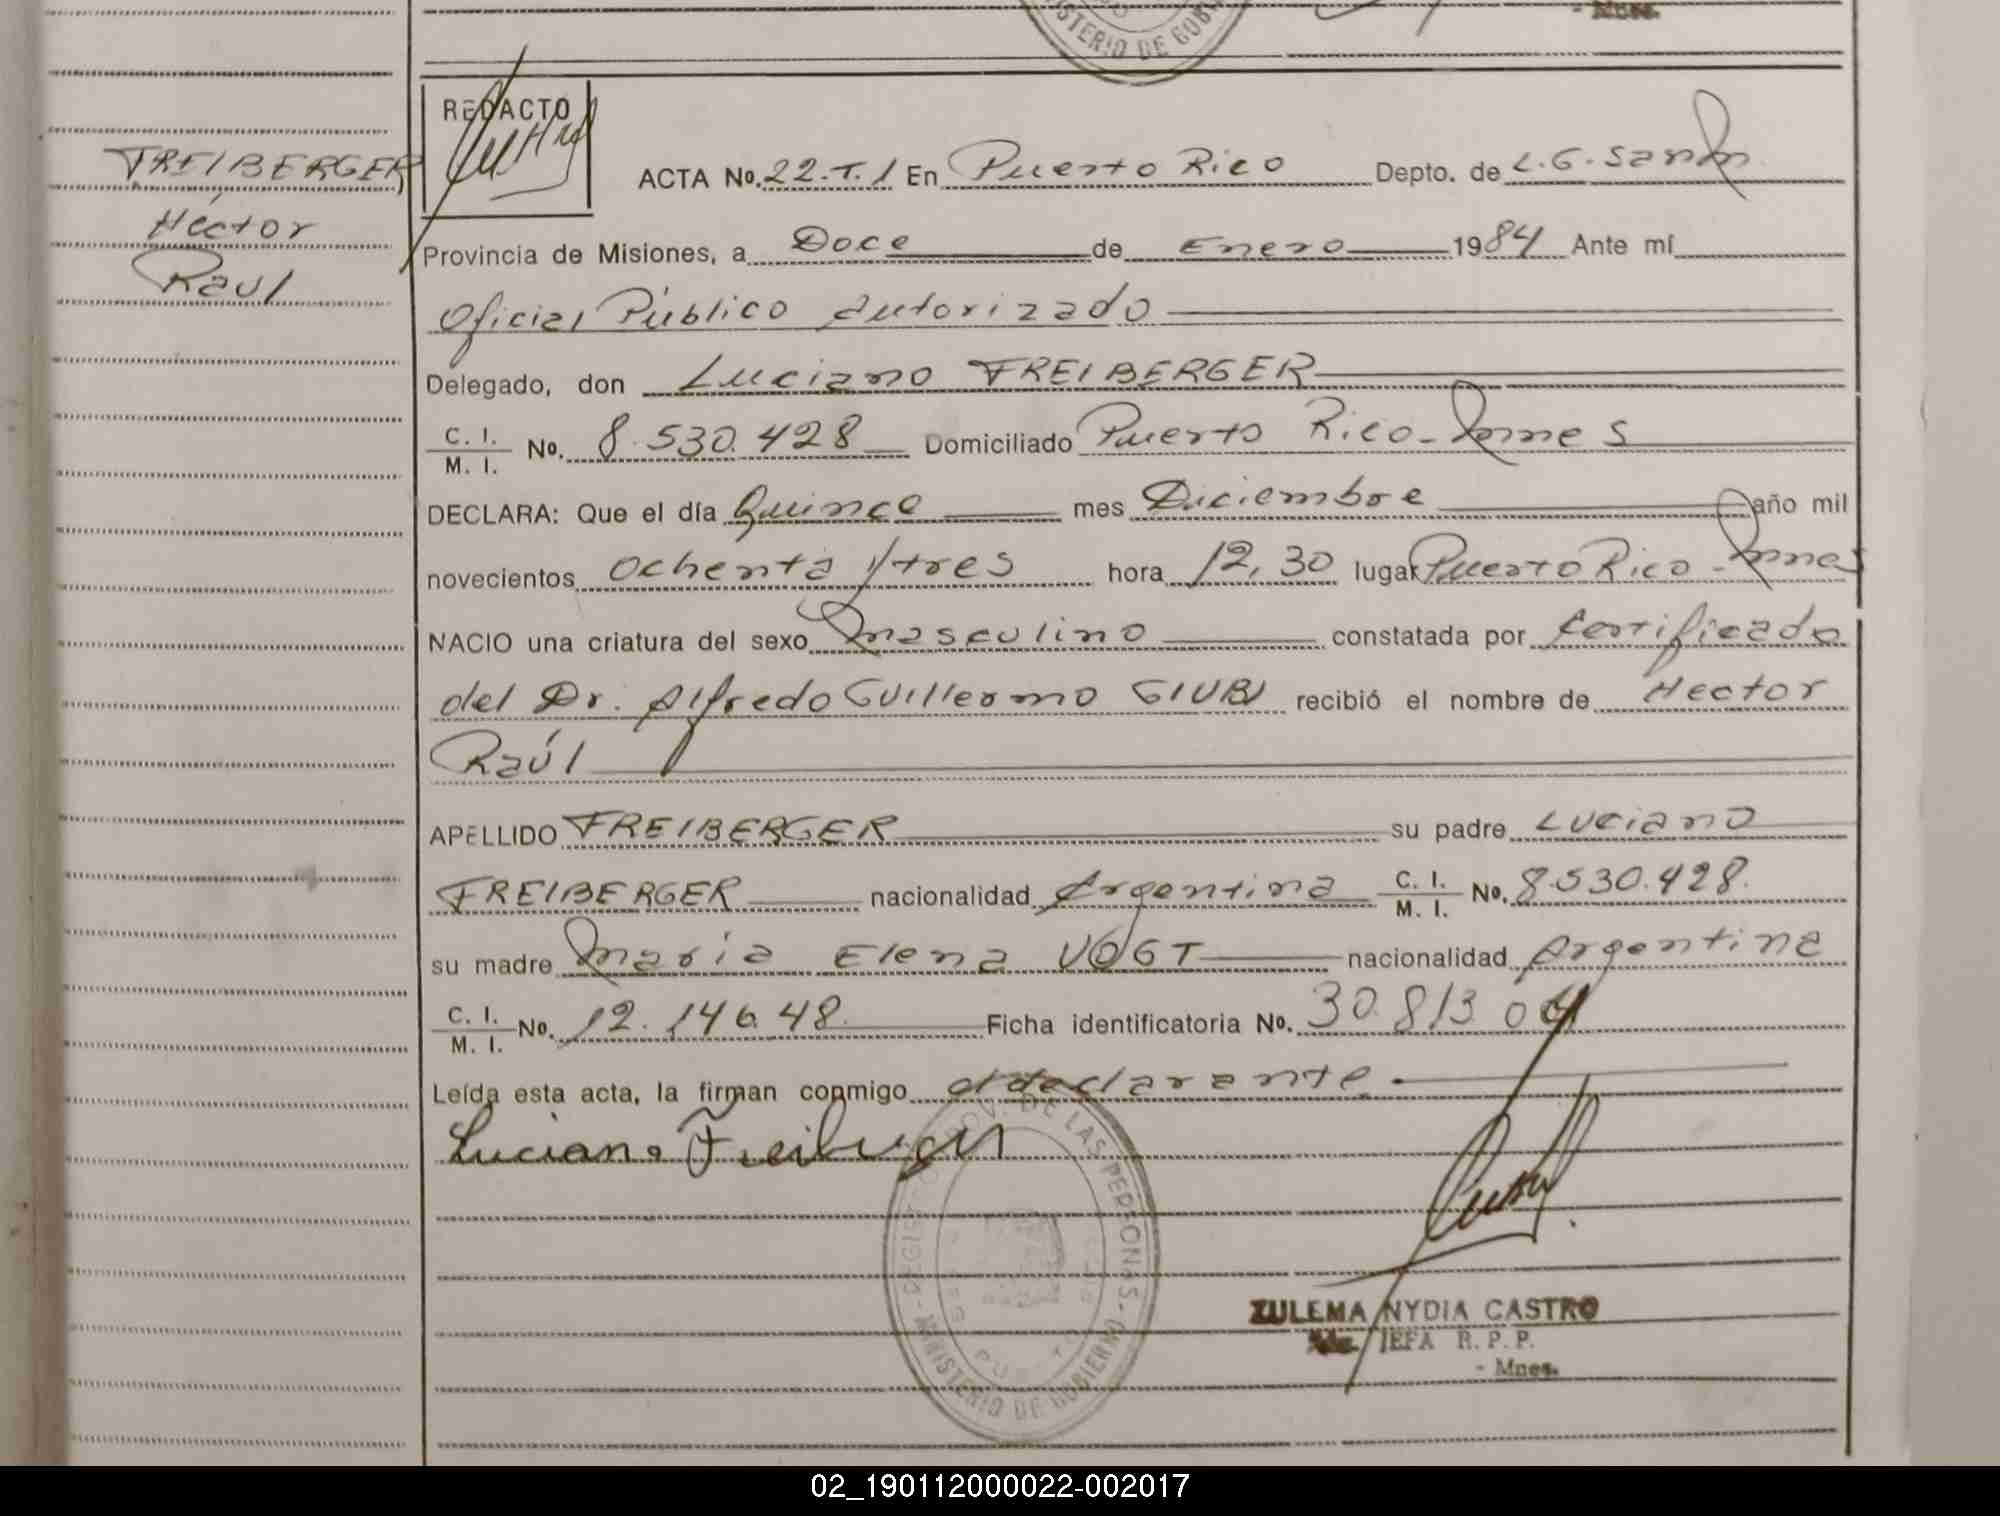 MINISTERIO DE GOBI
- Mnes.
FREIBERGER
Héctor
Raúl
REDACTO
ACTA No. 22.T.1 En Puerto Rico Depto. de L.G.San M
Provincia de Misiones, a Doce de Enero 1984 Ante mí
Oficial Público Autorizado
Delegado, don Luciano FREIBERGER
C. I. M. I. No. 8.530.428 Domiciliado Puerto Rico-Mnes
DECLARA: Que el día Quince mes Diciembre año mil
novecientos ochenta y tres hora 12,30 lugar Puerto Rico-Mnes
NACIO una criatura del sexo Masculino constatada por Certificado
del Dr. Alfredo Guillermo GIUBI recibió el nombre de Hector
Raúl
APELLIDO FREIBERGER su padre Luciano
FREIBERGER nacionalidad Argentina C. I. M. I. No. 8.530.428.
su madre María Elena VOGT nacionalidad Argentina
C. I. M. I. No. 12.146.48. Ficha identificatoria No. 30.813.04
Leída esta acta, la firman conmigo el declarante.
Luciano Freiberger
PROV. DE LAS PERSONAS - MINISTERIO DE GOBIERNO
ZULEMA NYDIA CASTRO
JEFA R. P. P.
- Mnes.
02_190112000022-002017